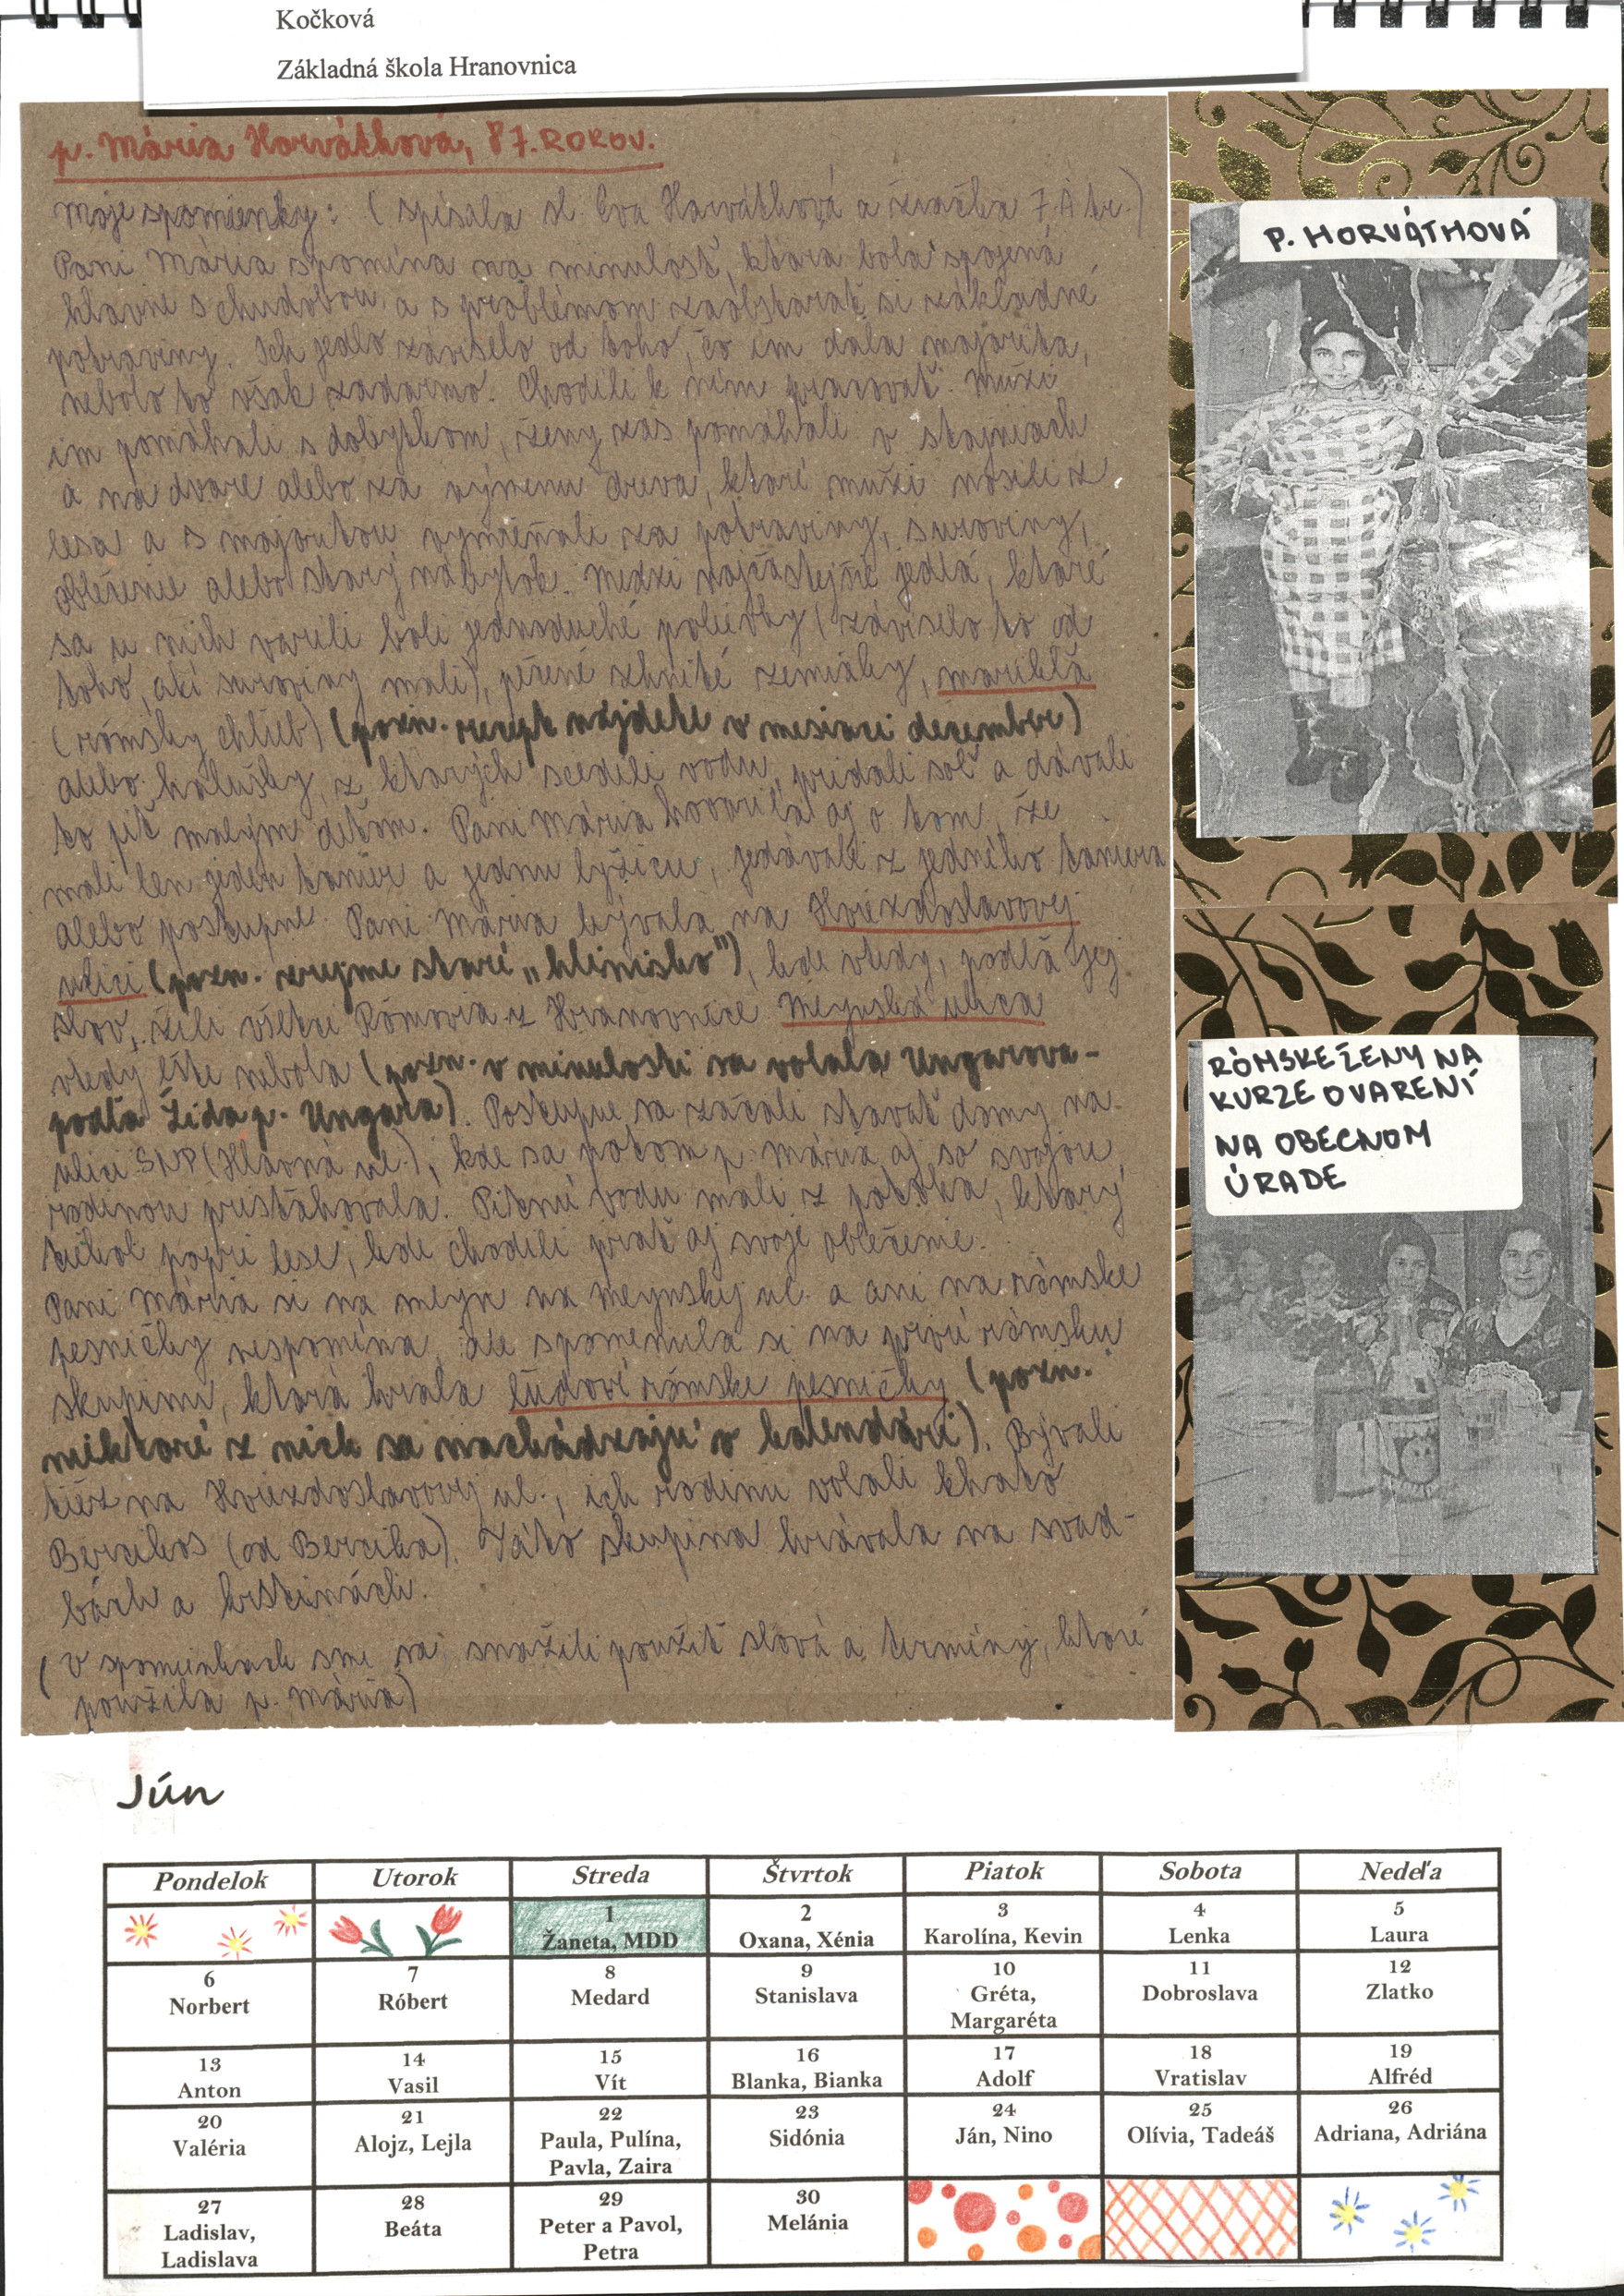 Kočková
Základná škola Hranovnica
p. Mária Horváthová, 87. ROKOV.
Moje spomienky: (spísala sl. Eva Horváthová a žiačka 7.A tr.)
Pani Mária spomína na minulosť, ktorá bola spojená
hlavne s chudobou a s problémom zaobstarať si základné
potraviny. Ich jedlo záviselo od toho, čo im dala majorita,
nebolo to však zadarmo. Chodili k ním pracovať. Muži
im pomáhali s dobytkom, ženy zas pomáhali v stajniach
a na dvore alebo za výmenu dreva, ktoré muži nosili z
lesa a s majoritou vymieňali za potraviny, suroviny,
oblečenie alebo starý nábytok. Medzi najčastejšie jedlá, ktoré
sa u nich varili boli jednoduché polievky (záviselo to od
toho, aké suroviny mali), pečené zhnité zemiaky, mariklá
(rómsky chlieb) (pozn. recept nájdete v mesiaci december)
alebo halušky, z ktorých scedili vodu, pridali soľ a dávali
to piť malým deťom. Pani Mária hovorila aj o tom, že
mali len jeden tanier a jednu lyžicu, jedávali z jedného taniera
alebo postupne. Pani Mária bývala na Hviezdoslavovej
ulici (pozn. zrejme staré „hlinisko"), kde vtedy, podľa jej
slov, žili všetci Rómovia z Hranovnice. Mlynská ulica
vtedy ešte nebola (pozn. v minulosti sa volala Ungarova-
podľa Žida p. Ungara). Postupne sa začali stavať domy na
ulici SNP (Hlavná ul.), kde sa potom p. Mária aj so svojou
rodinou presťahovala. Pitnú vodu mali z potoka, ktorý
tiekol popri lese, kde chodili prať aj svoje oblečenie.
Pani Mária si na mlyn na Mlynskej ul. a ani na rómske
pesničky nespomína, ale spomenula si na prvú rómsku
skupinu, ktorá hrala ľudové rómske pesničky (pozn.
niektoré z nich sa nachádzajú v kalendári). Bývali
tiež na Hviezdoslavovej ul., ich rodinu volali khato
Bercikos (od Bercika). Táto skupina hrávala na svad-
bách a krstinách.
(V spomienkach sme sa snažili použiť slová a termíny, ktoré
použila p. Mária)
P. HORVÁTHOVÁ
RÓMSKE ŽENY NA
KURZE O VARENÍ
NA OBECNOM
ÚRADE
Jún
Pondelok Utorok Streda Štvrtok Piatok Sobota Nedeľa
1 2 3 4 5
Žaneta, MDD Oxana, Xénia Karolína, Kevin Lenka Laura
6 7 8 9 10 11 12
Norbert Róbert Medard Stanislava Gréta, Dobroslava Zlatko
Margaréta
13 14 15 16 17 18 19
Anton Vasil Vít Blanka, Bianka Adolf Vratislav Alfréd
20 21 22 23 24 25 26
Valéria Alojz, Lejla Paula, Pulína, Sidónia Ján, Nino Olívia, Tadeáš Adriana, Adriána
Pavla, Zaira
27 28 29 30
Ladislav, Beáta Peter a Pavol, Melánia
Ladislava Petra